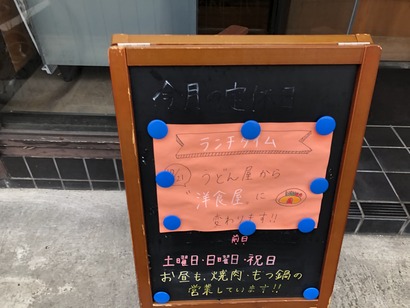 今月の定休日
ランチタイム
うどん屋から
"洋食屋"に
変わります!!
前日
土曜日・日曜日・祝日
お昼も、焼肉・もつ鍋の
営業しています!!